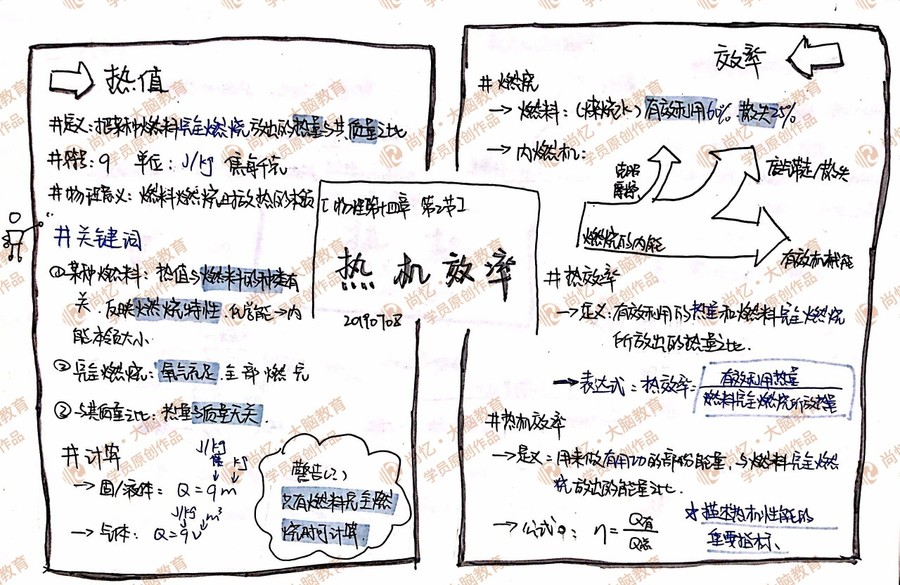 热值
#定义：把某种燃料完全燃烧放出的热量与其质量之比
#符号：q 单位：J/kg 焦每千克
#物理意义：燃料燃烧时放热的本领
#关键词
①某种燃料：热值与燃料的种类有
关．反映燃烧特性．化学能→内
能本领大小
②完全燃烧：氧气充足．全部燃完
③与其质量之比：热量与质量无关．
#计算
J/kg kg
→固/液体：Q=qm
J/kg m³
→气体：Q=qv
警告(2)
只有燃料完全燃
烧时可计算．
[物理第十四章 第2节]
热机效率
20190708
效率
#燃烧
→燃料：(煤烧水)有效利用60% 散失25%
→内燃机：
废气带走/散失
燃烧的内能
有效机械能
#热效率
→定义：有效利用的热量和燃料完全燃烧
所放出的热量之比．
→表达式：热效率=有效利用热量
燃料完全燃烧所放热量
#热机效率
→定义：用来做有用功的部份能量，与燃料完全燃
烧放出的能量之比．
→公式：η=Q有
Q总
☆描述热机性能的
重要指标、
尚忆·大脑教育
学员原创作品